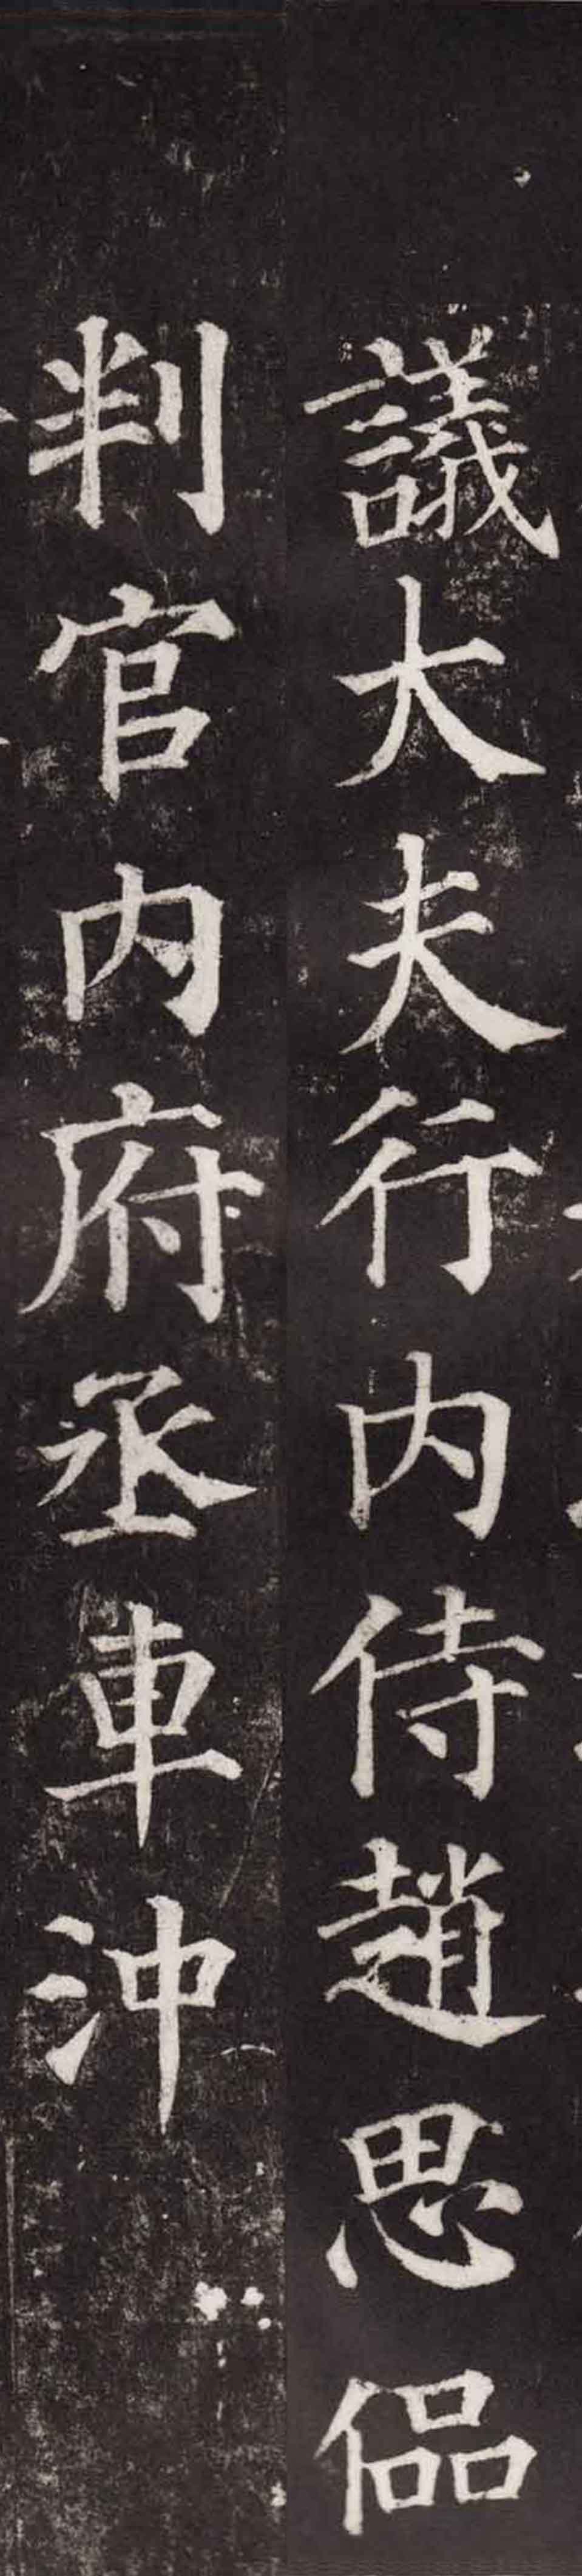 議大夫行内侍趙思偘
判官内府丞車沖